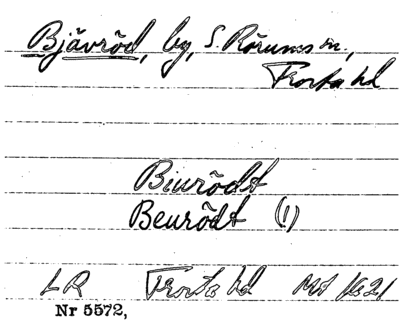 Bjävröd, by, S. Rörums sn.,
Frosta hd
Biurödt
Beurödt (!)
LR Frosta hd Mt 1621
Nr 5572,